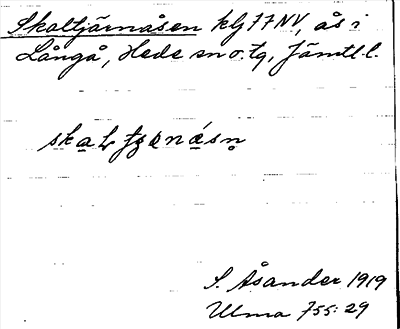 Skaltjärnåsen kbl 77NV, ås i
Långå, Hede sn o. tg, Jämtl. l.
S. Åsander 1919
Ulma 755:29